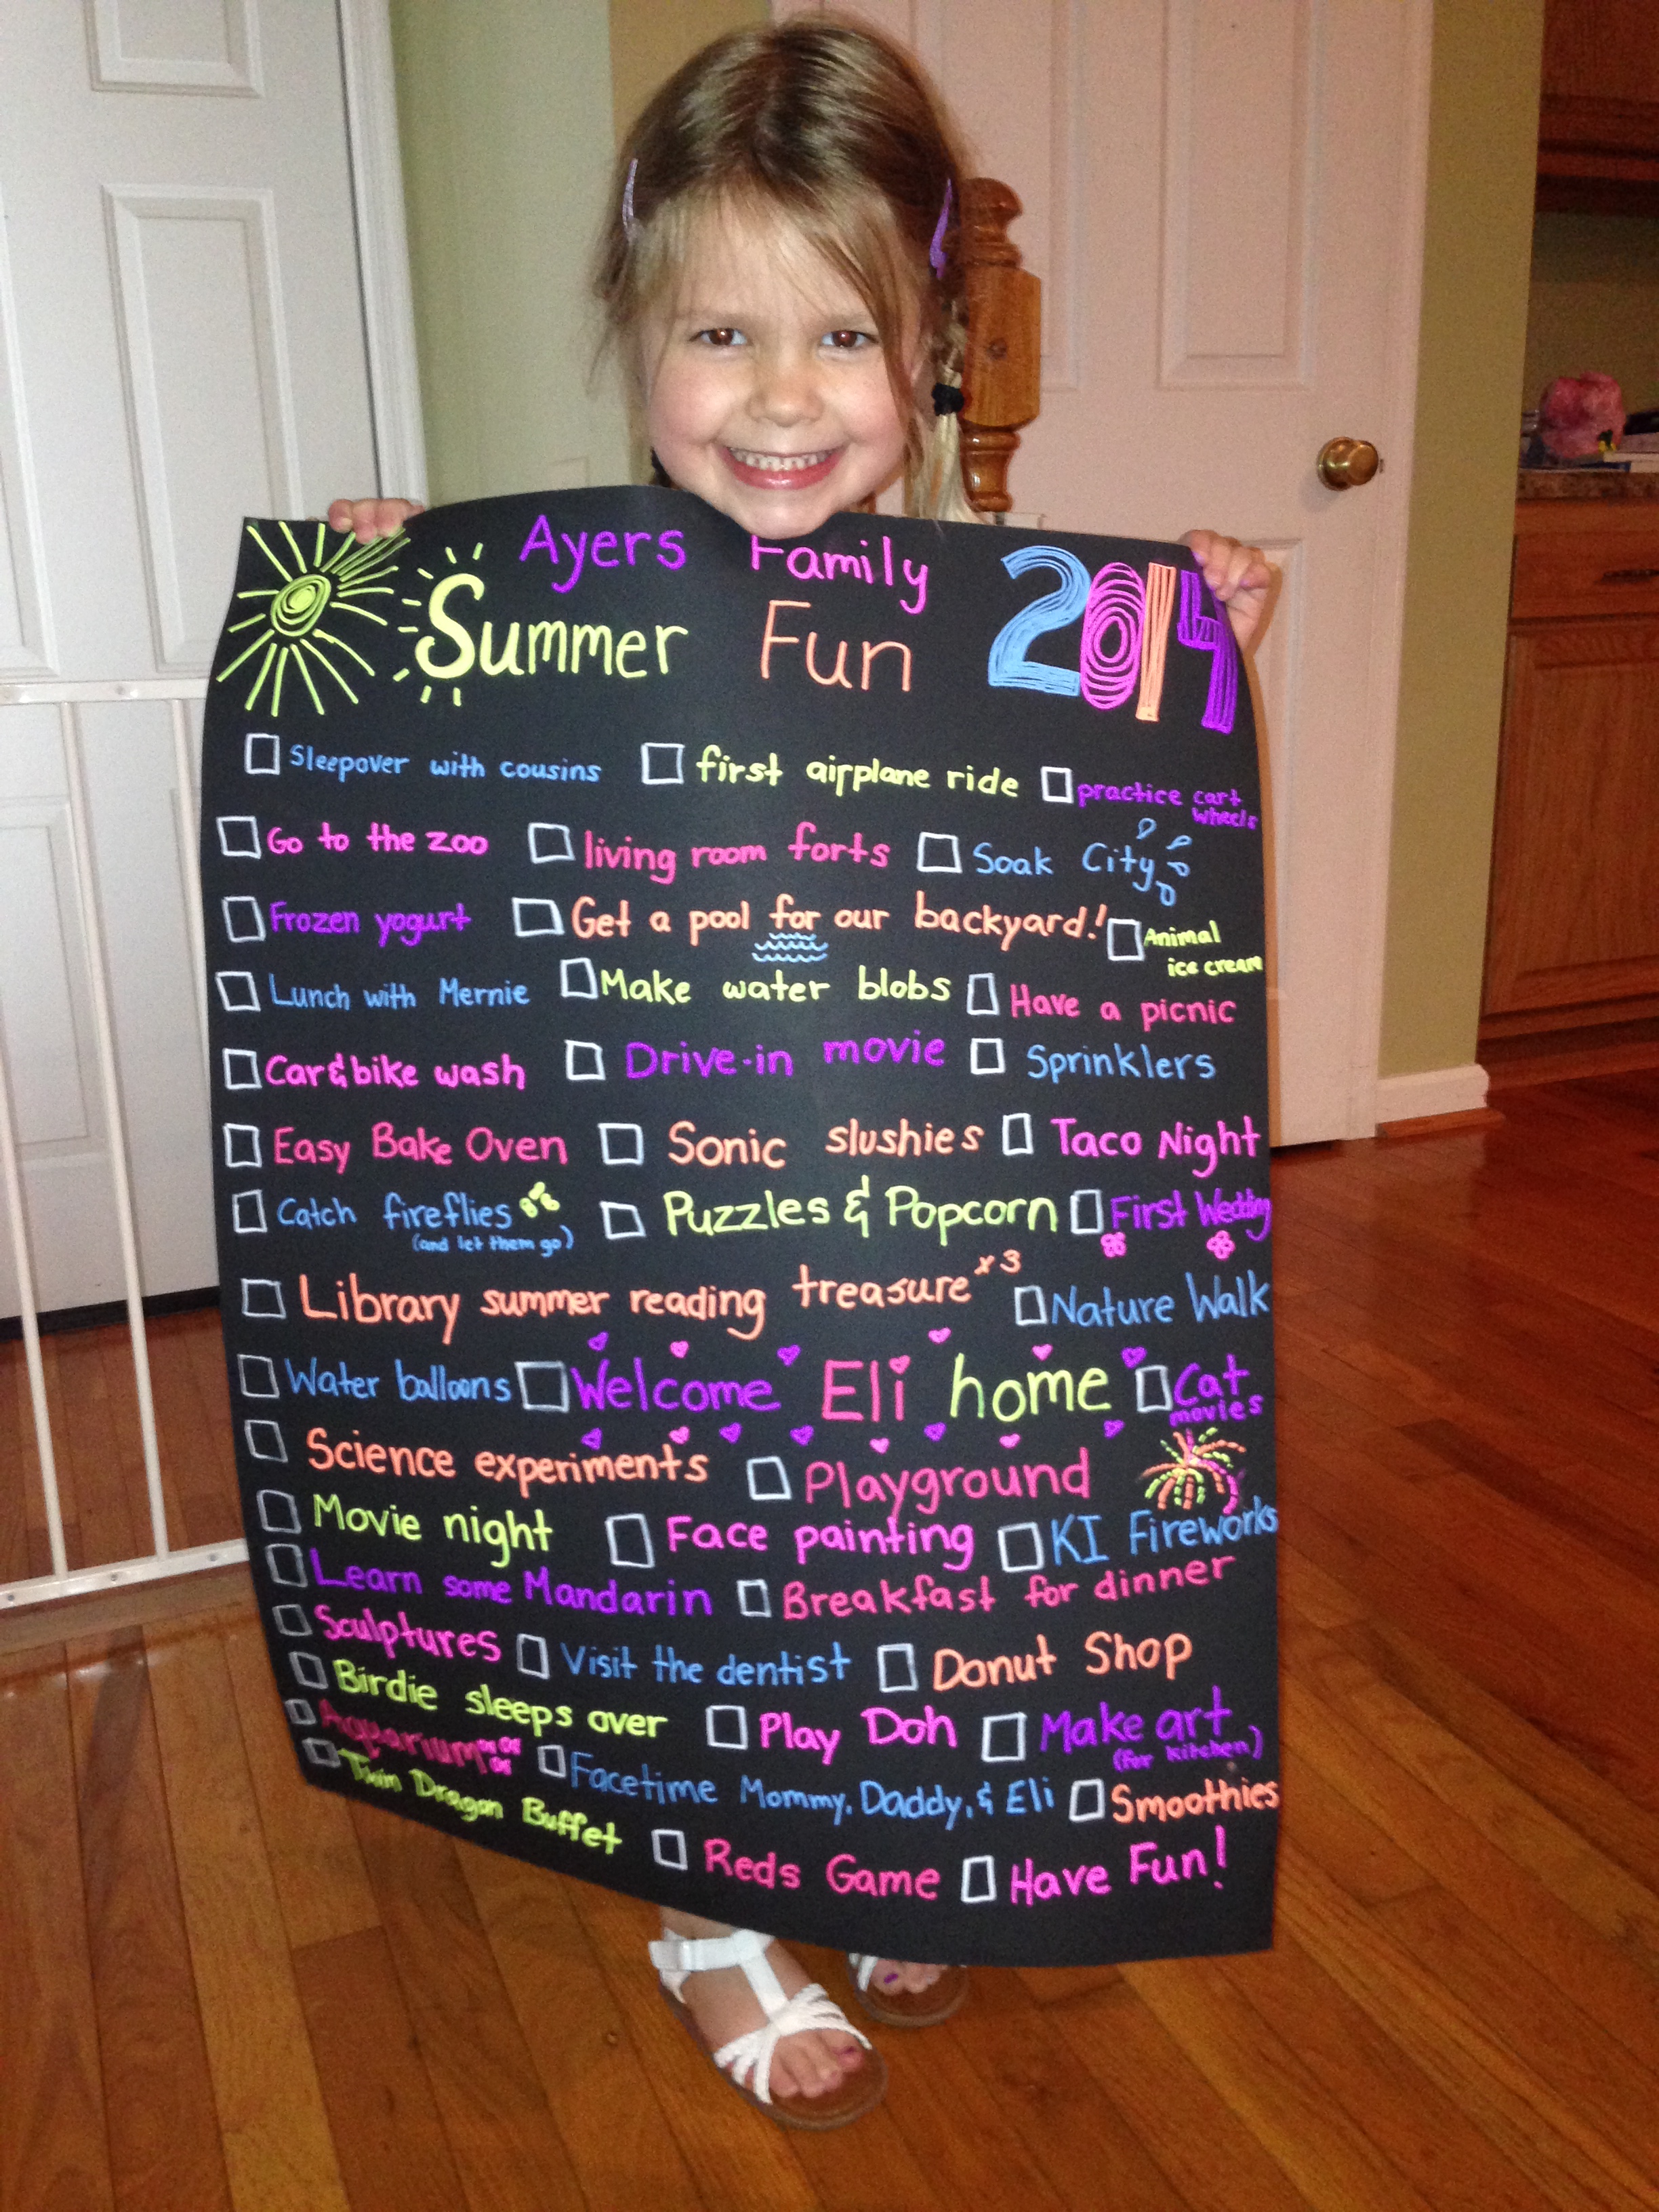 Ayers Family
Summer Fun 2014
Sleepover with cousins first airplane ride practice cart
wheels
Go to the zoo living room forts Soak City
Frozen yogurt Get a pool for our backyard! Animal
ice cream
Lunch with Mernie Make water blobs Have a picnic
Car & bike wash Drive-in movie Sprinklers
Easy Bake Oven Sonic slushies Taco Night
Catch fireflies Puzzles & Popcorn First Wedding
(and let them go)
Library summer reading treasure x3 Nature Walk
Water balloons Welcome Eli home Cat
movies
Science experiments Playground
Movie night Face painting KI Fireworks
Learn some Mandarin Breakfast for dinner
Sculptures Visit the dentist Donut Shop
Birdie sleeps over Play Doh Make art
(for kitchen)
Aquarium Facetime Mommy, Daddy, & Eli Smoothies
Twin Dragon Buffet Reds Game Have Fun!